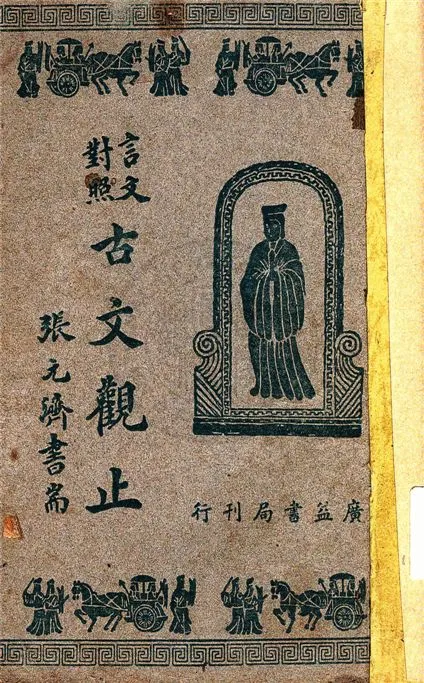 言文
對照
古文觀止
張元濟書耑
廣益書局刊行